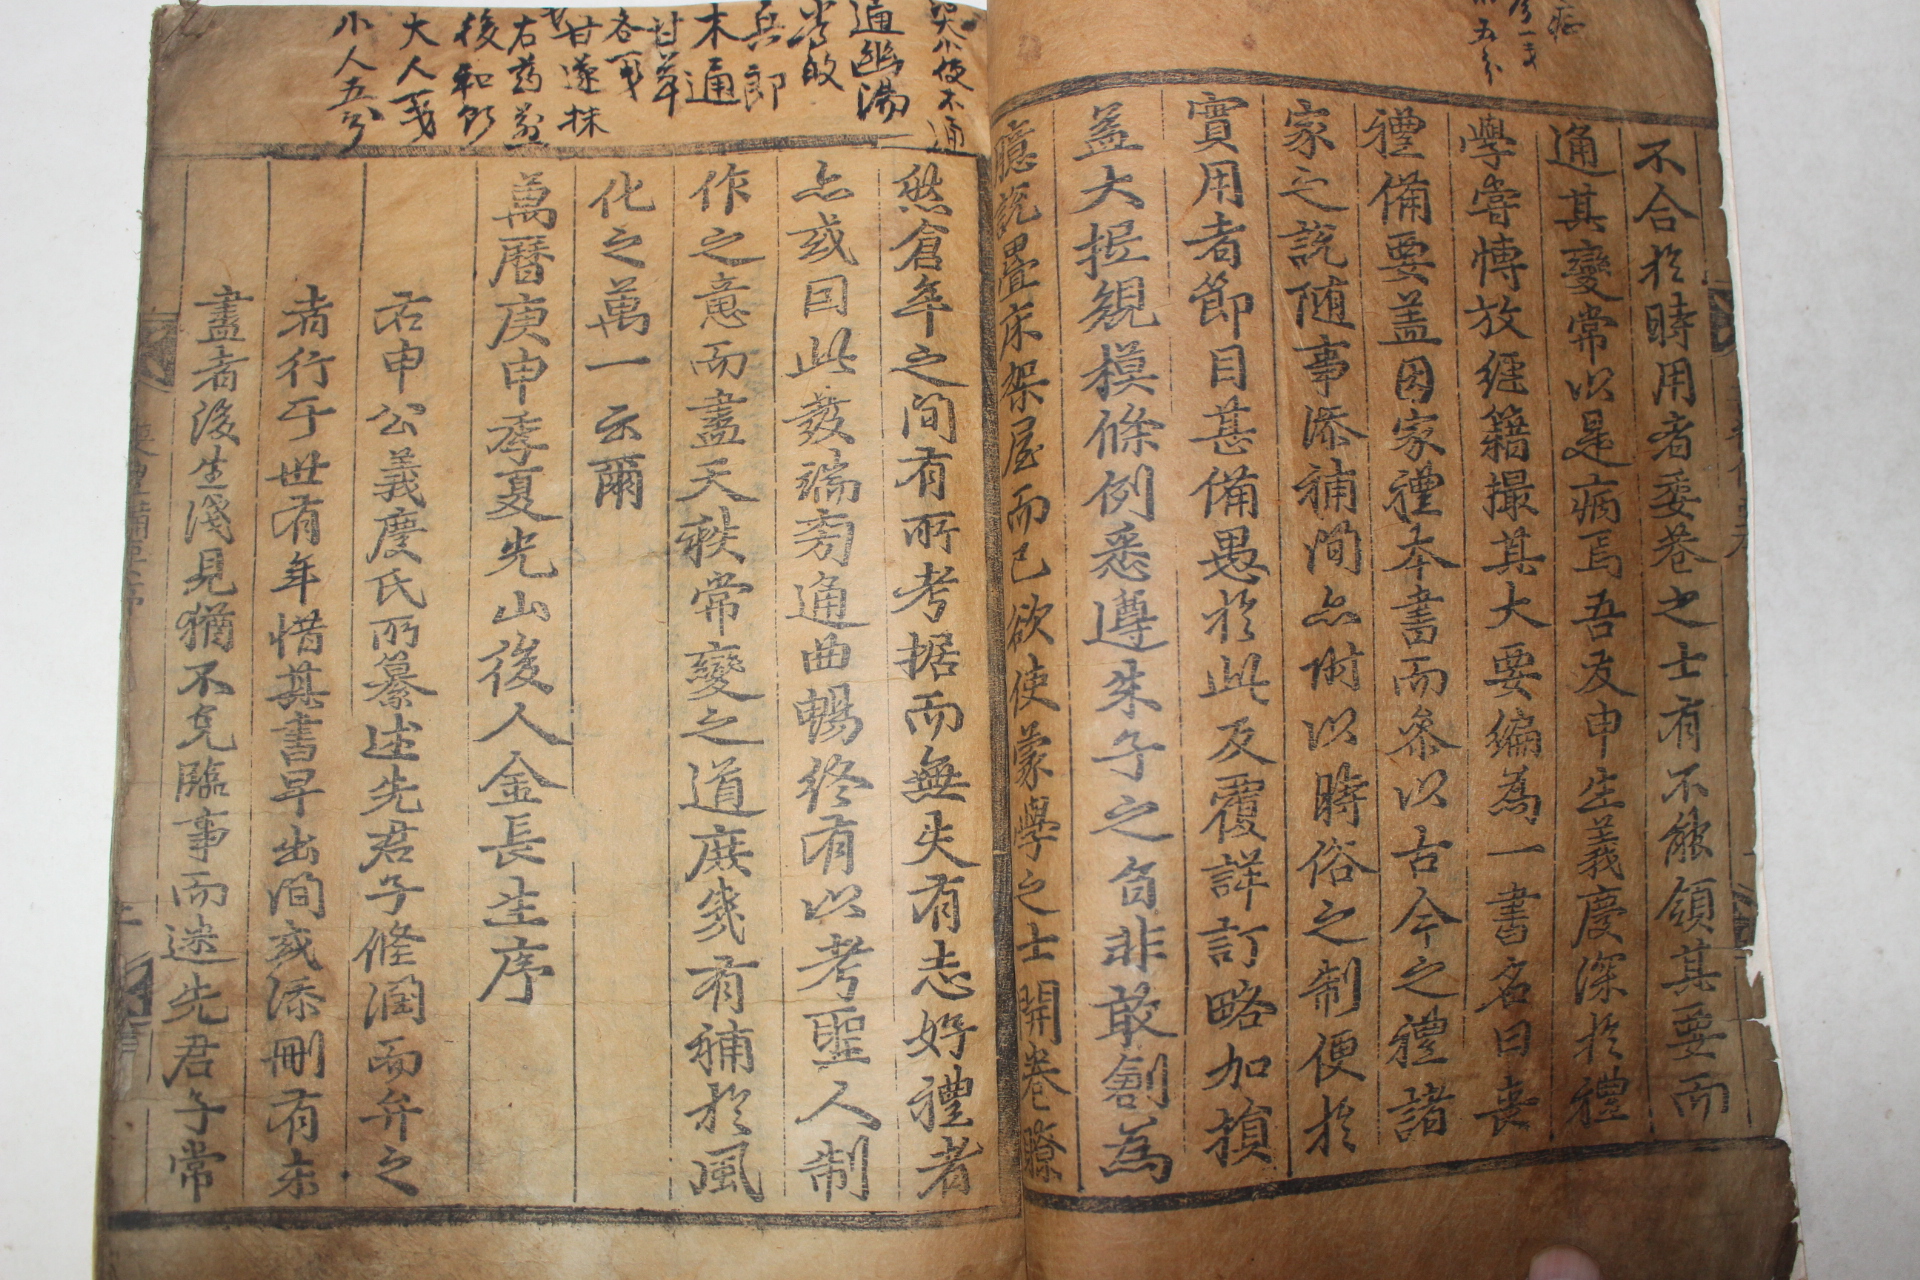 不合於時用者委巷之士有不能領其要而
通其變常以是病焉吾友申生義慶深於禮
學嘗博放經籍撮其大要編為一書名曰喪
禮備要盖因家禮本書而叅以古今之禮諸
家之說隨事添補間亦附以時俗之制便於
實用者節目甚備愚於此反覆詳訂略加損
益大抵規模條例悉遵朱子之旨非敢創為
臆說疊床架屋而已欲使蒙學之士開卷瞭
然倉卒之間有所考据而無失有志好禮者
亦或因此發端旁通曲暢終有以考聖人制
作之意而盡天秩常變之道庶幾有補於風
化之萬一云爾
萬曆庚申季夏光山後人金長生序
右申公義慶氏所纂述先君子修潤而弁之
者行于世有年惜其書早出間或添刪有未
盡者後生淺見猶不免臨事而迷先君子常
大小便不通
通幽湯
兵郎
木通
甘草
各一戔
甘遂末
右葯煎
後和飮
大人一戔
小人五分